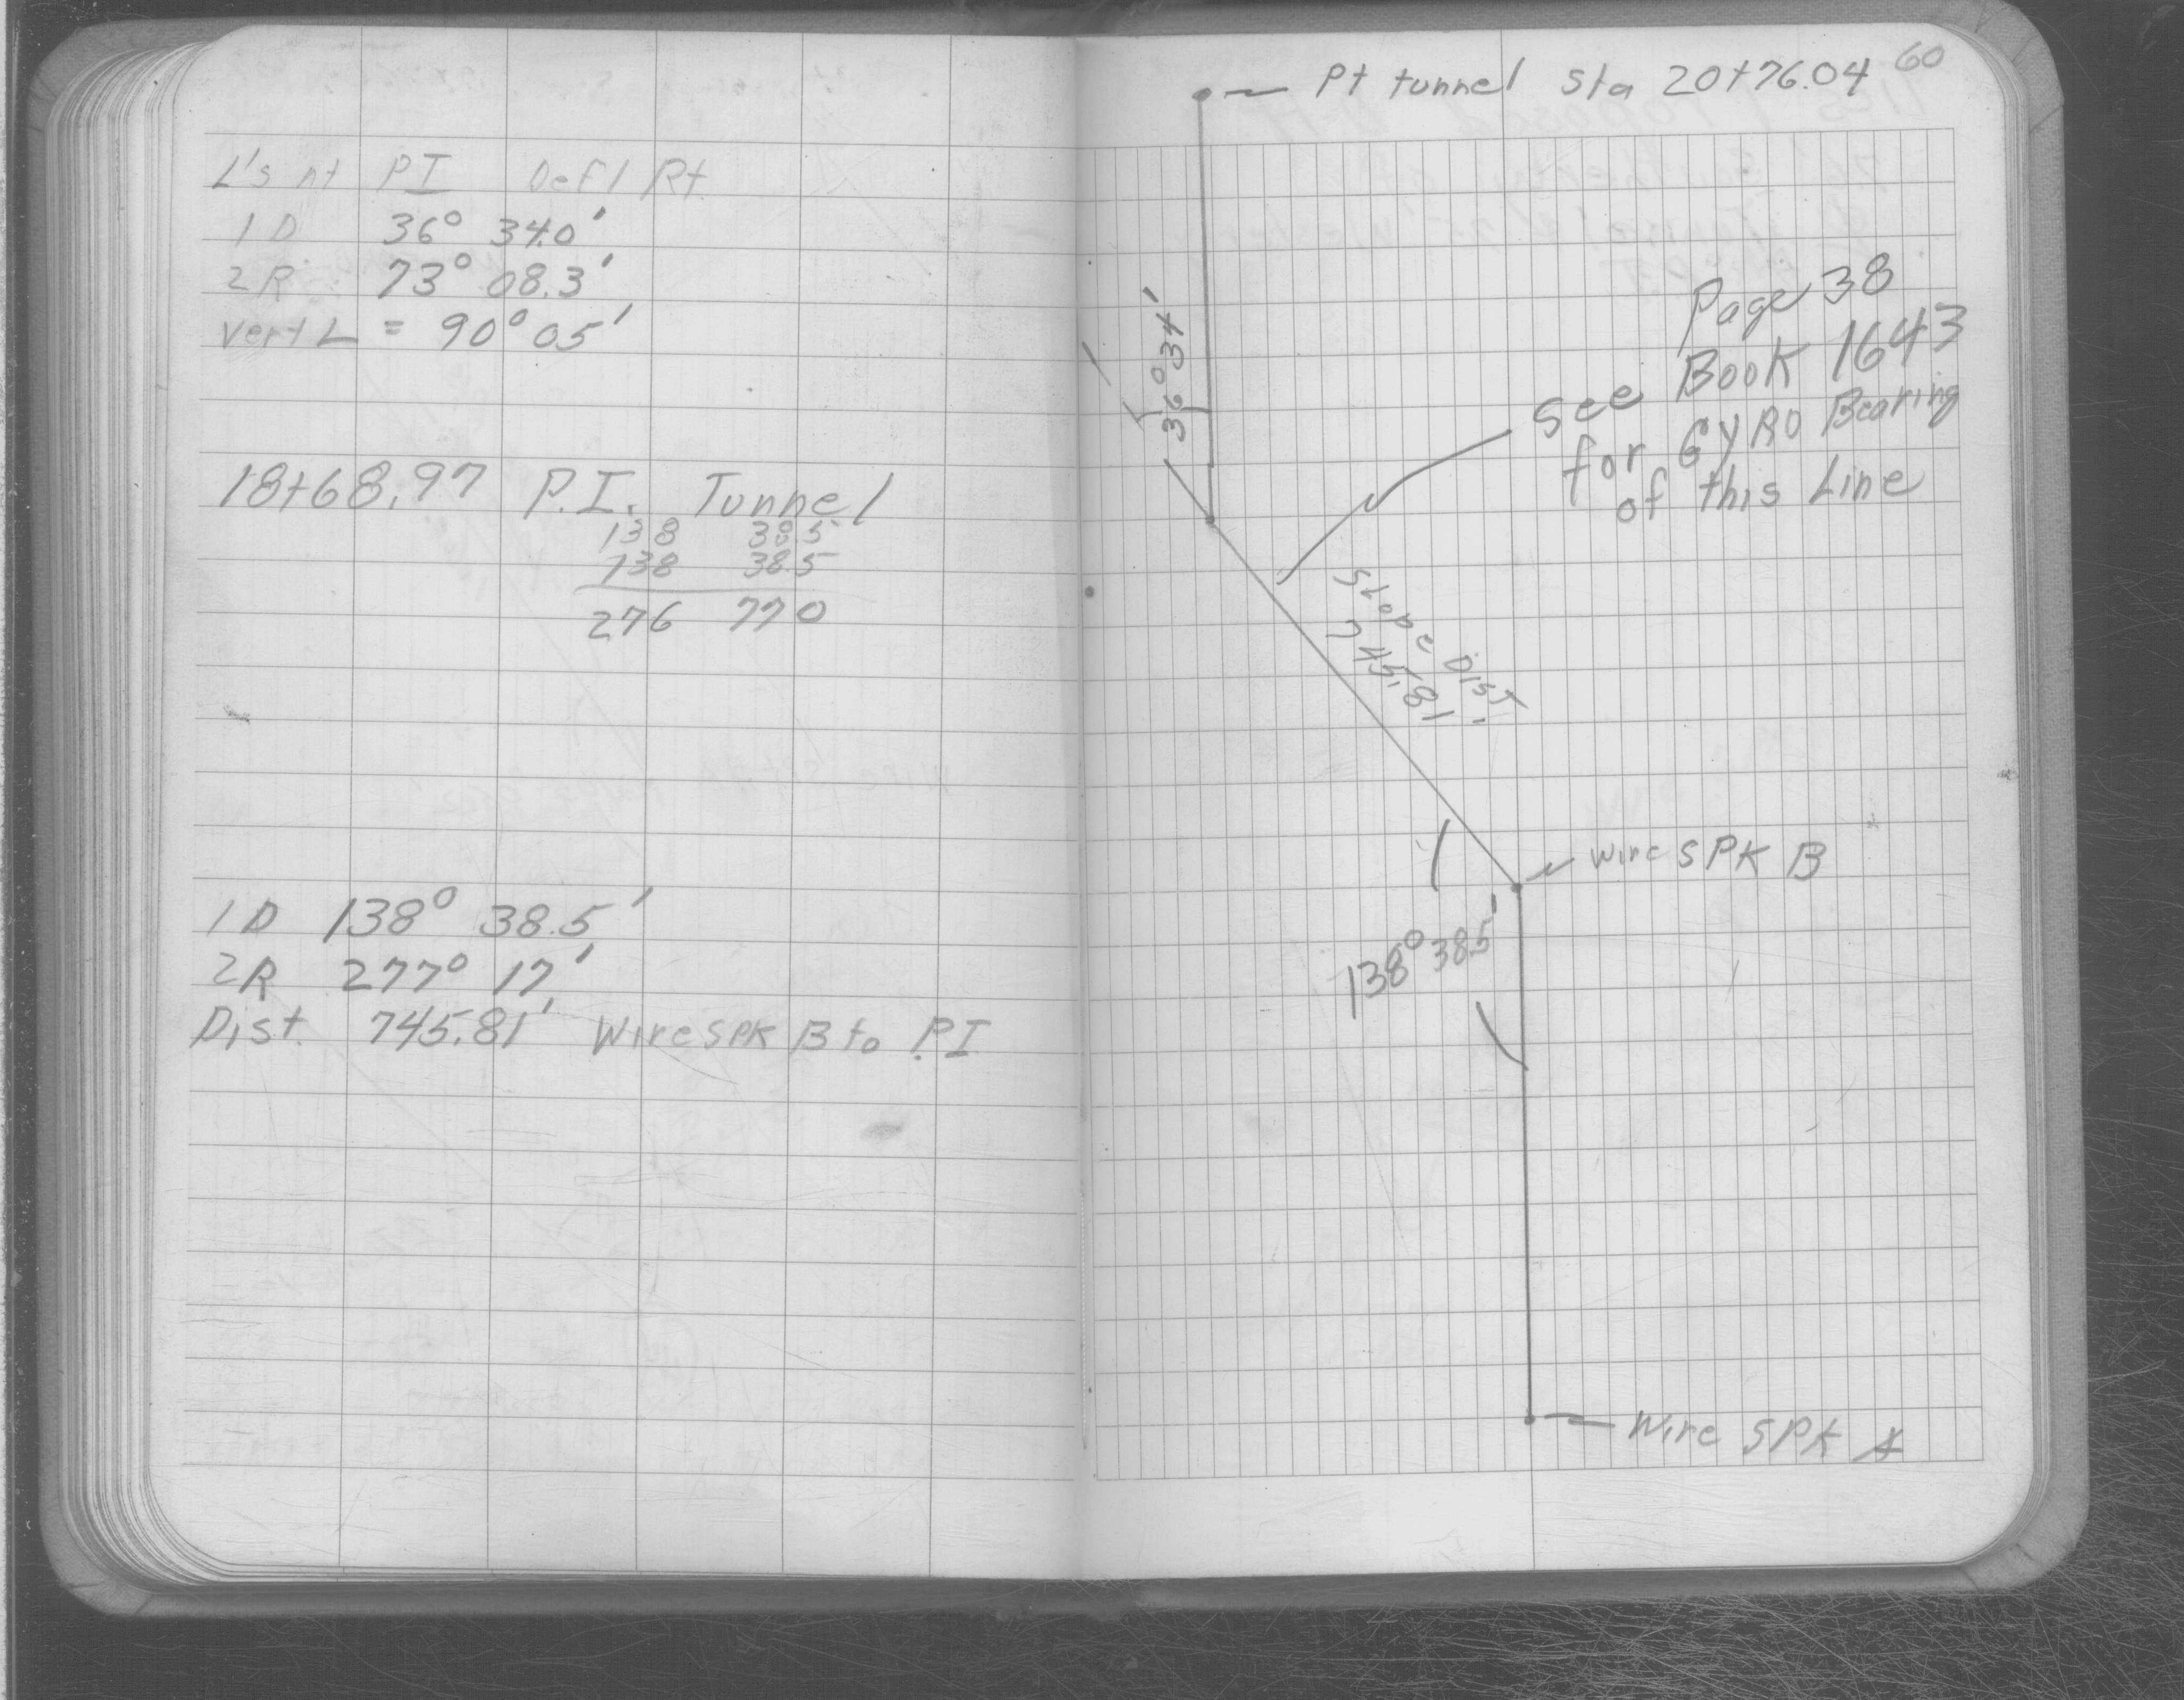 L's at PI Defl Rt
1 D 36° 34.0'
2 R 73° 08.3'
Vert L = 90° 05'
18+68.97 P.I. Tunnel
138 38.5
138 38.5
276 770
1 D 138° 38.5'
2 R 277° 17'
Dist. 745.81' Wire SPK B to PI
60
Pt tunnel Sta 20+76.04
36° 34'
Page 38
See Book 1643
for GYRO Bearing
of this Line
Slope Dist.
745.81
Wire SPK B
138° 38.5'
Wire SPK A